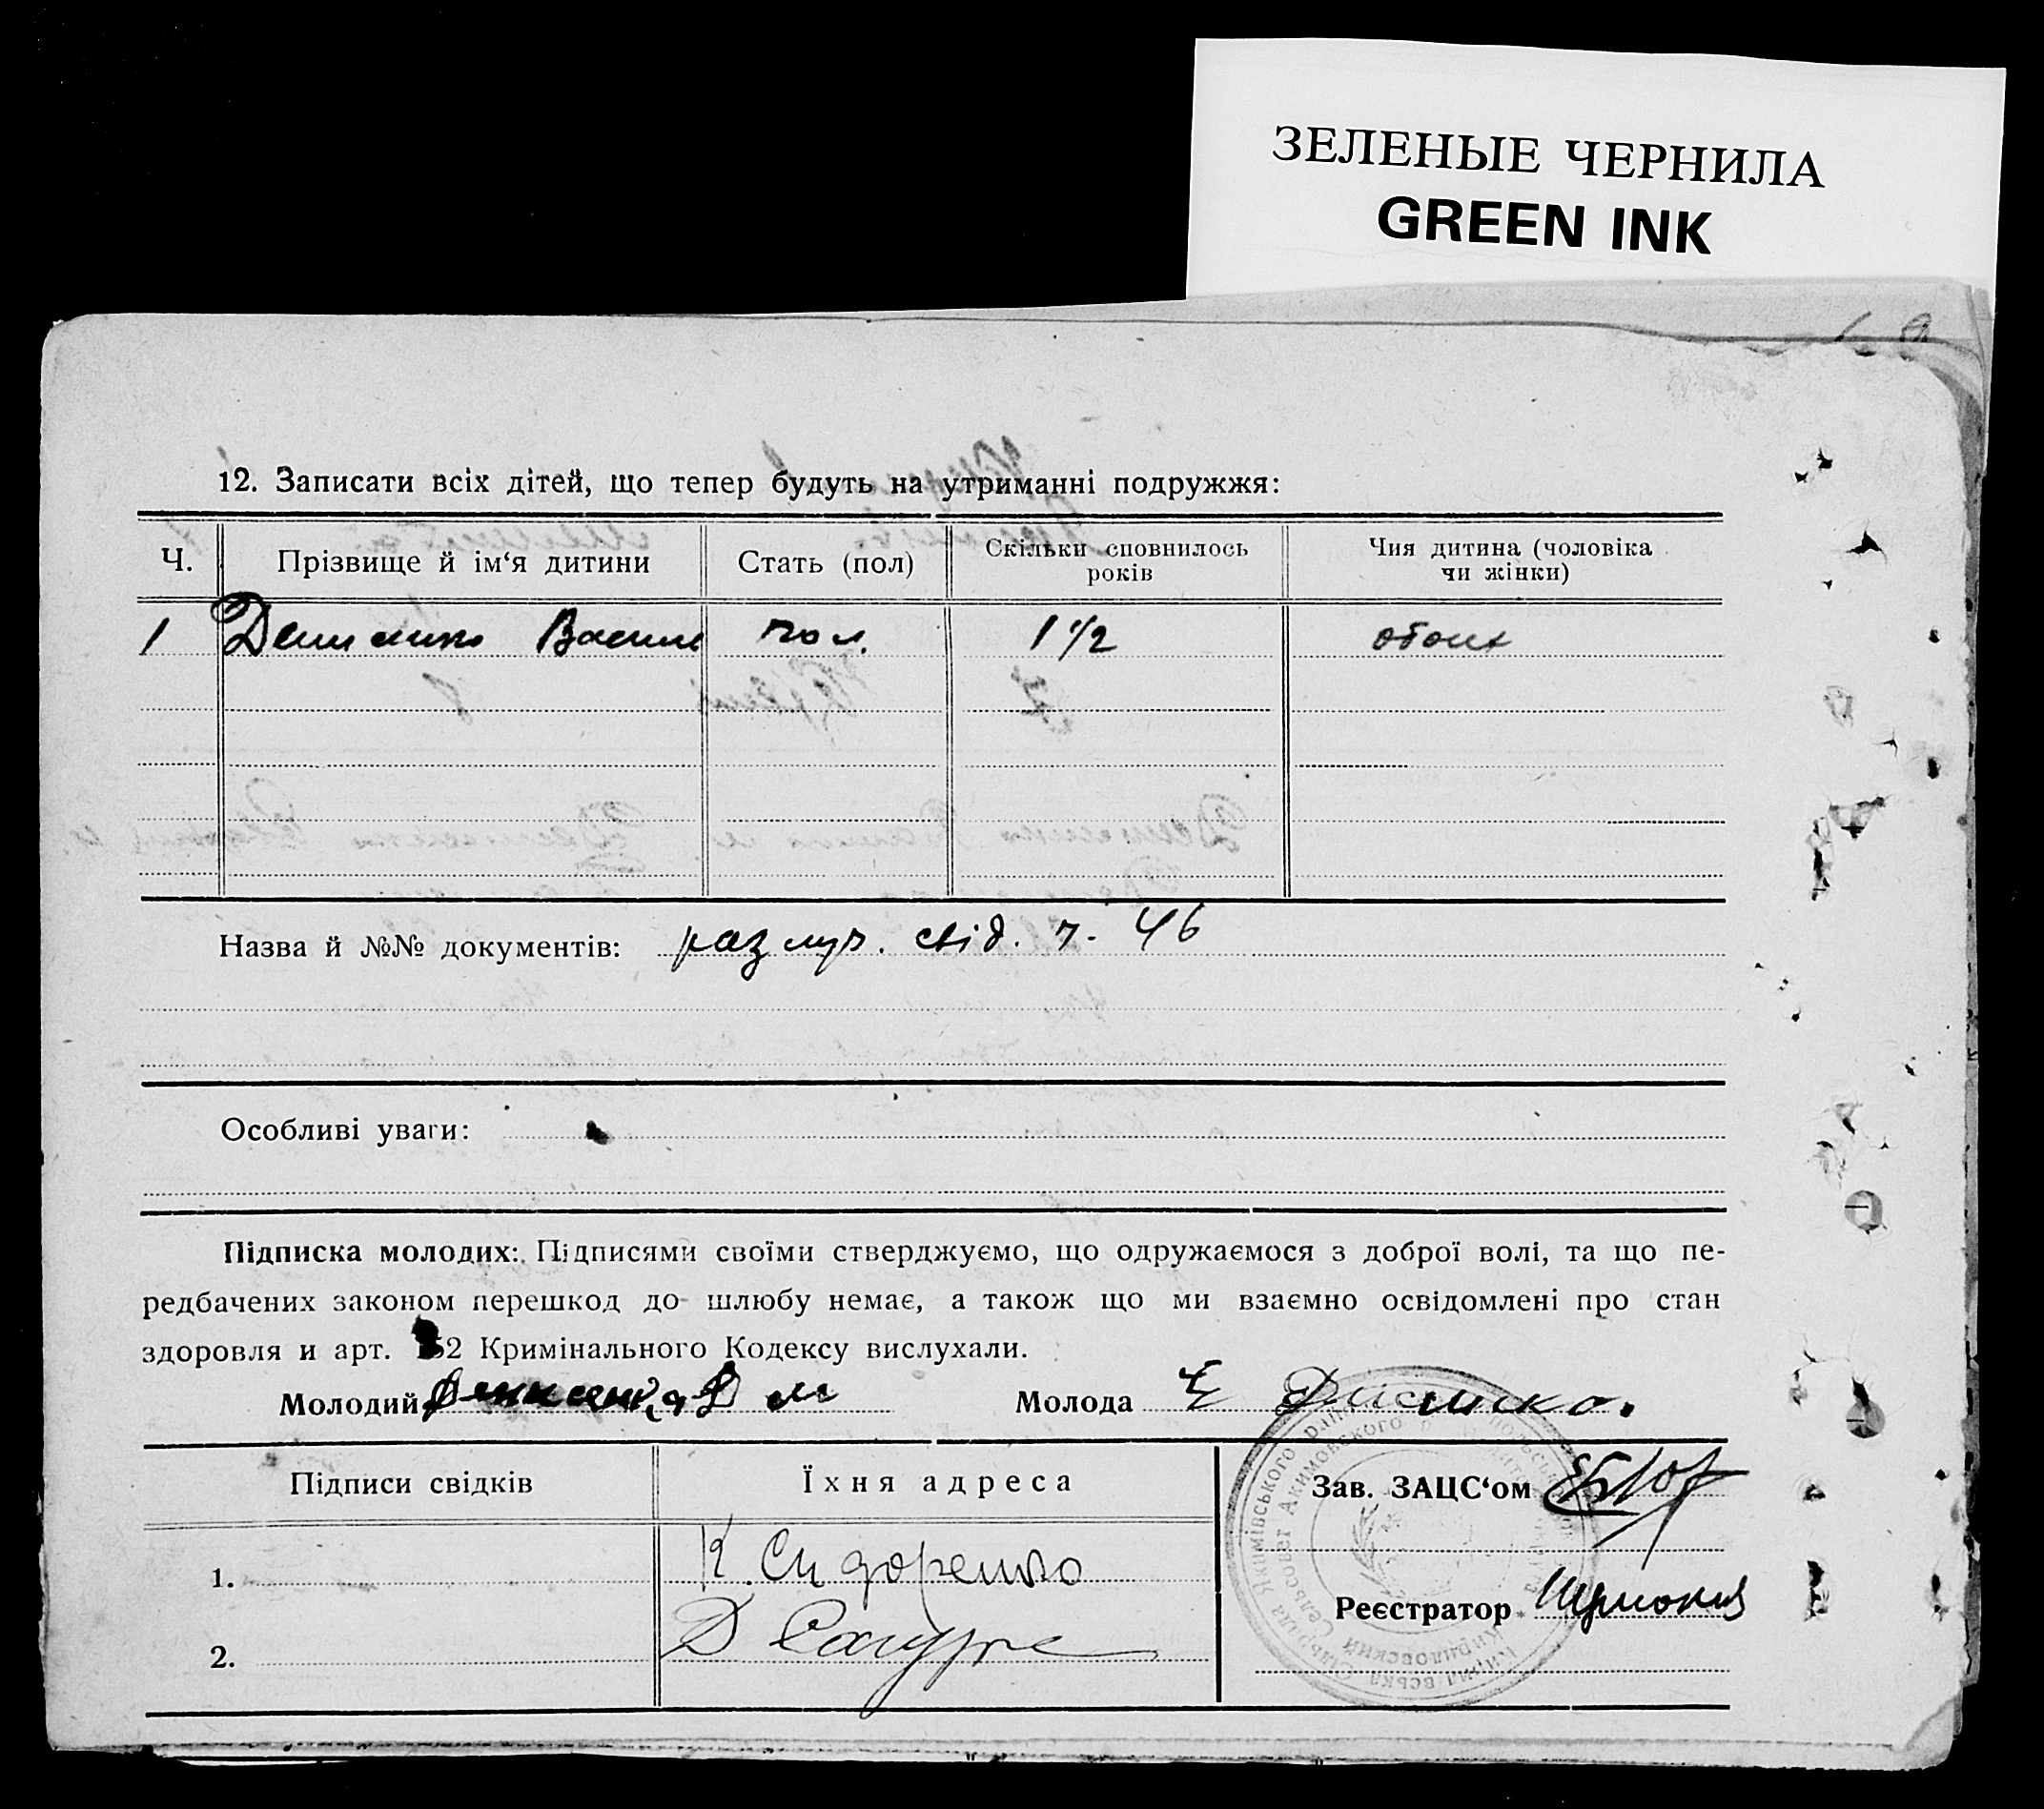 ЗЕЛЕНЫЕ ЧЕРНИЛА
GREEN INK
12. Записати всіх дітей, що тепер будуть на утриманні подружжя:
Ч. Прізвище й ім‘я дитини Стать (пол) Скільки сповнилось років Чия дитина (чоловіка чи жінки)
1 Василь 1 1/2 обоих
Назва й №№ документів: свід. ч. 46
Особливі уваги:
Підписка молодих: Підписями своїми стверджуємо, що одружаємося з доброї волі, та що пе-
редбачених законом перешкод до шлюбу немає, а також що ми взаємно освідомлені про стан
здоровля и арт. 2 Кримінального Кодексу вислухали.
Молодий Молода
Підписи свідків Їхня адреса Зав. ЗАЦС‘ом
1. К. Сидоренко
Реєстратор
2. Д